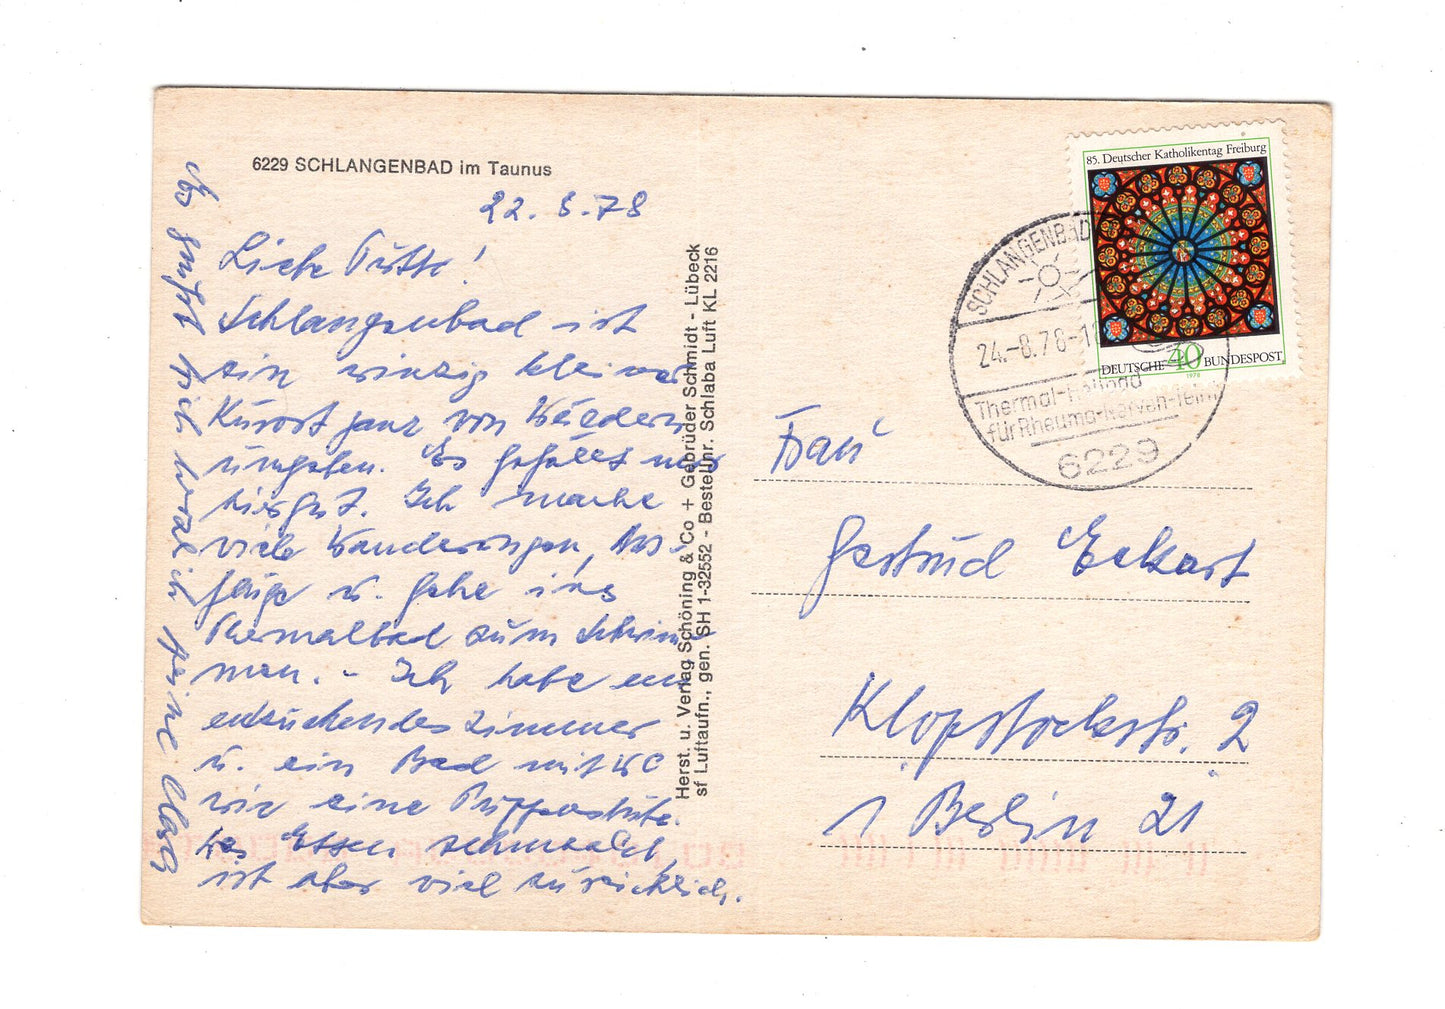 6229 SCHLANGENBAD im Taunus
22. 8. 78
Liebe Putti!
Schlangenbad ist
ein winzig kleiner
Kurort ganz von Wäldern
umgeben. Es gefällt mir
hier gut. Ich mache
viele Wanderungen, Aus-
flüge u. gehe ins
Thermalbad zum Schwim-
men. - Ich habe ein
entzückendes Zimmer
u. ein Bad mit WC
wie eine Puppenstube.
Das Essen schmeckt,
ist aber viel zu reichlich.
Es grüßt Dich herzlich Deine
Herst. u. Verlag Schöning & Co + Gebrüder Schmidt - Lübeck
sf Luftaufn., gen. SH 1-32552 - Bestellnr. Schlaba Luft KL 2216
85. Deutscher Katholikentag Freiburg
DEUTSCHE 40 BUNDESPOST
1978
SCHLANGENBAD
24.-8.78-1
Thermal-Heilbad
für Rheuma-Nerven-Teint
6229
Frau
Gertrud Eckart
Klopstockstr. 2
1 Berlin 21